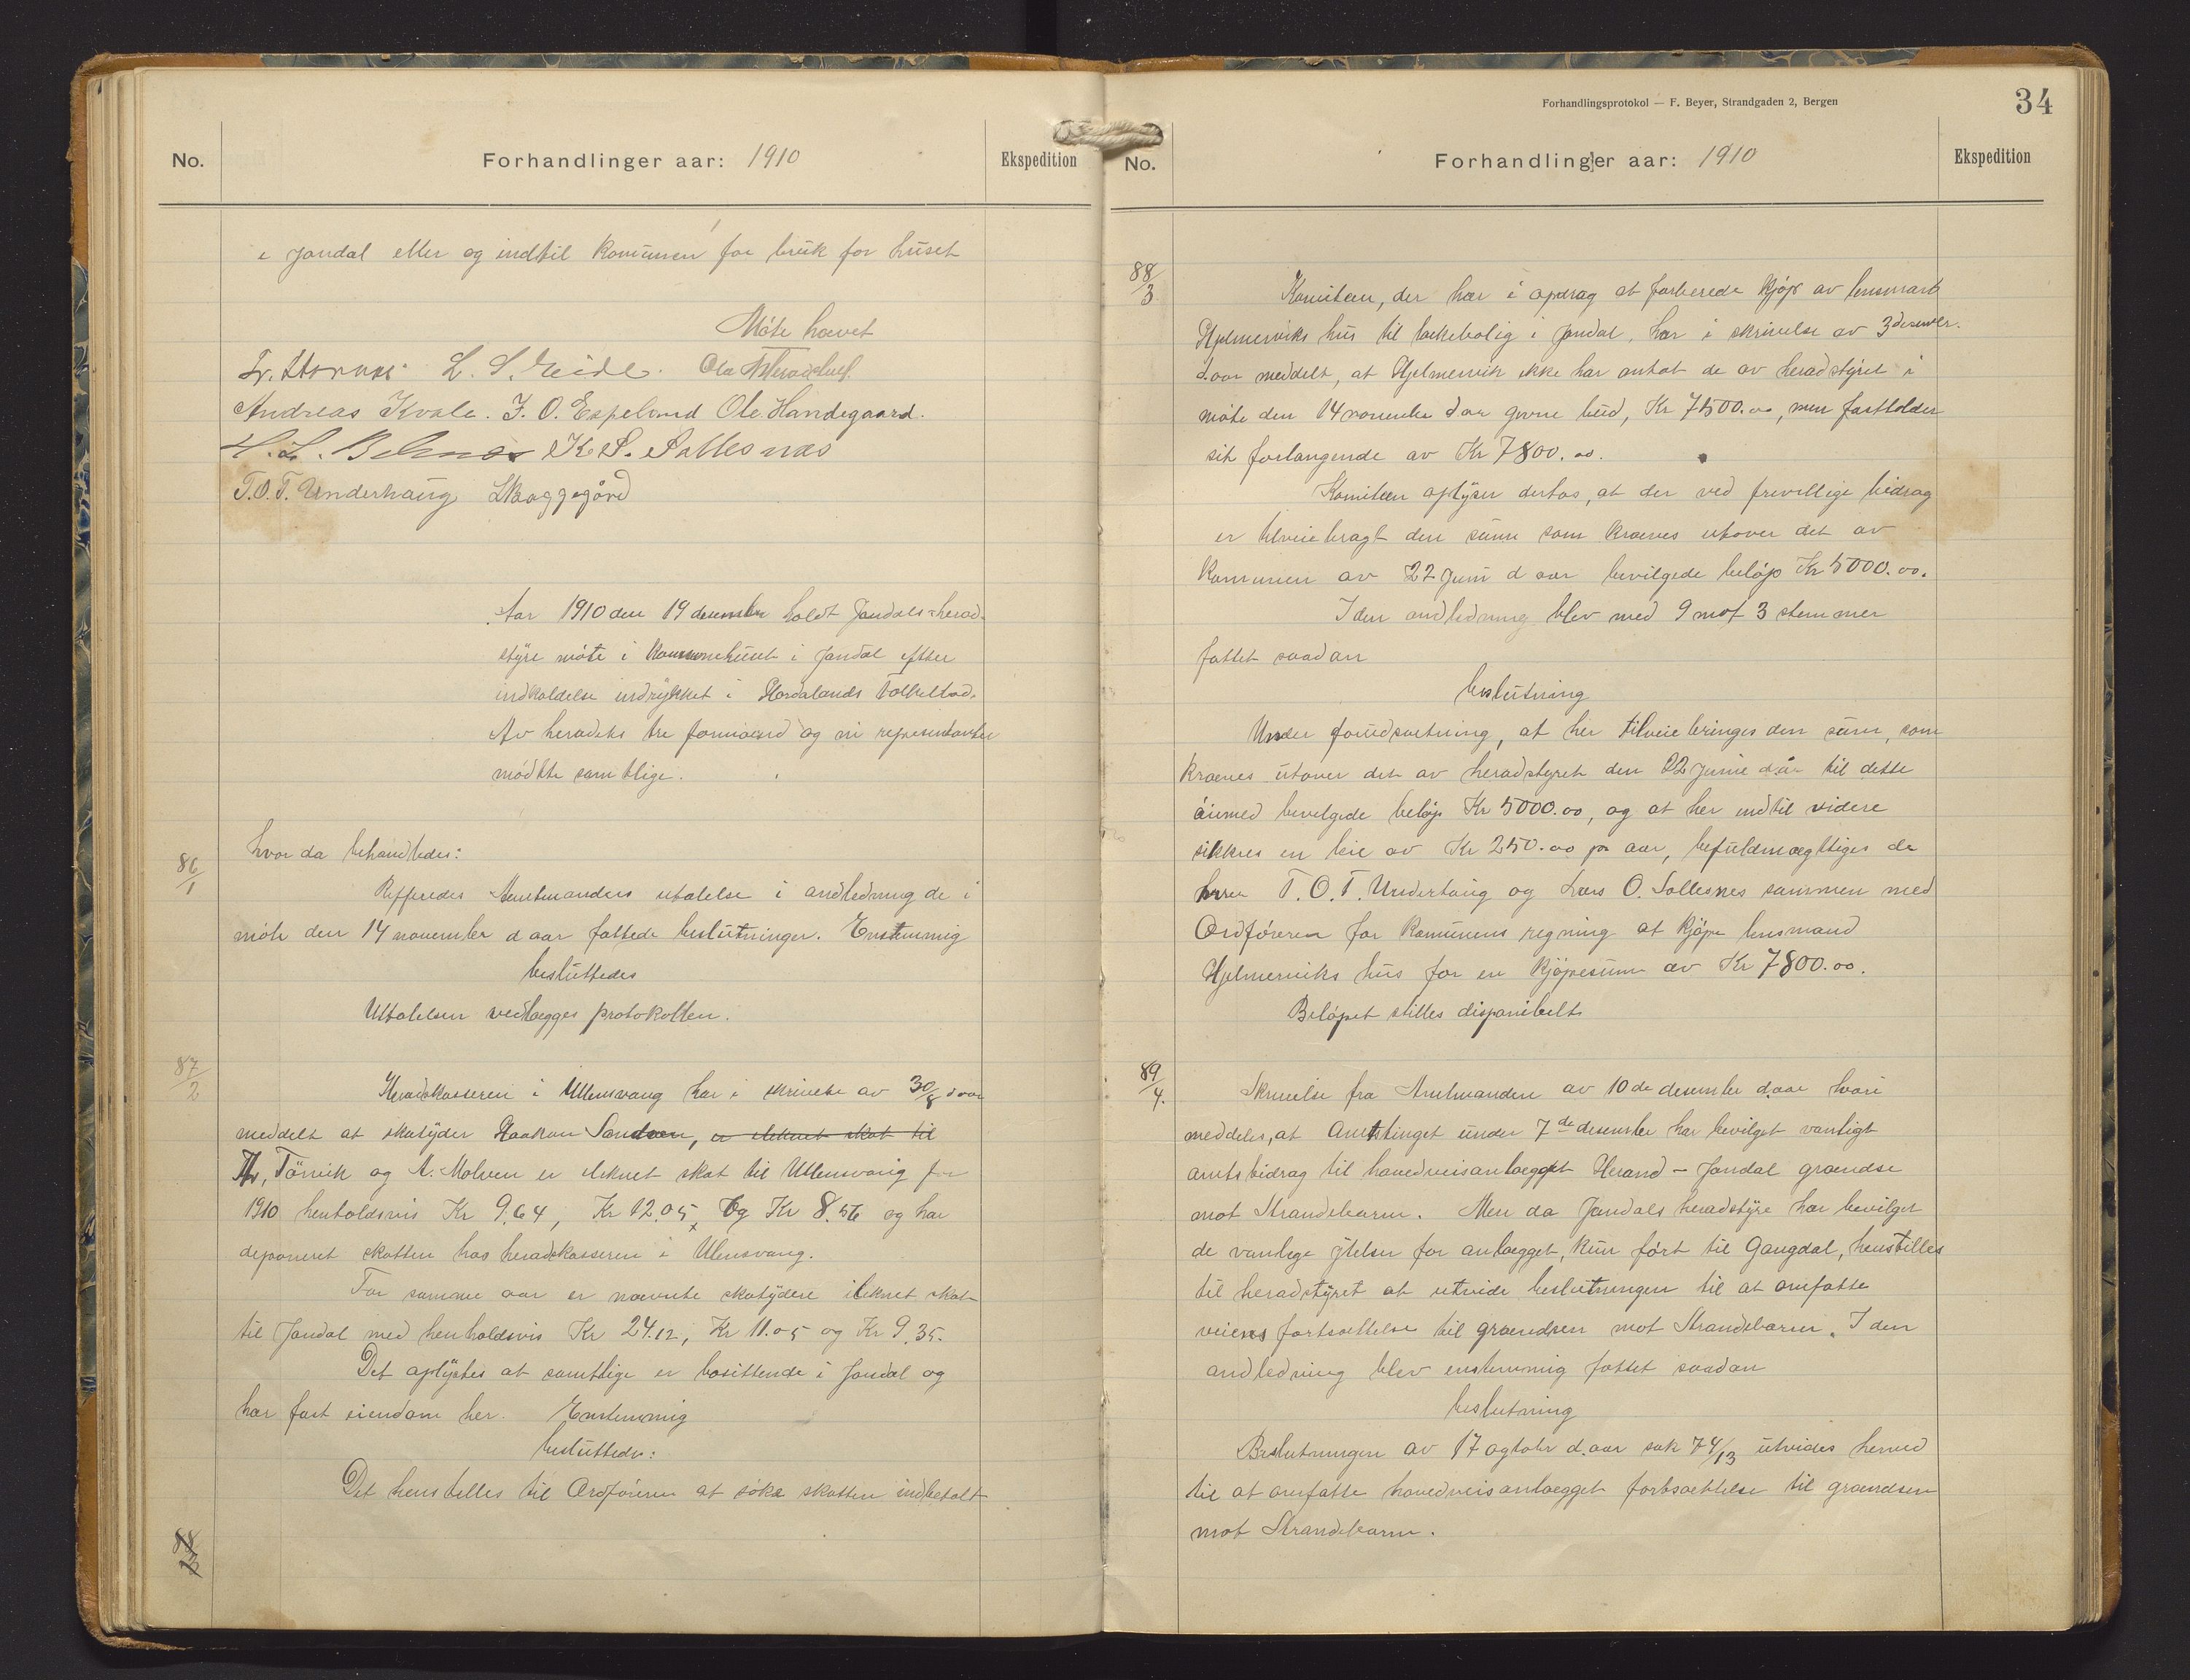 No.
Forhandlinger aar: 1910
Ekspedition
i Jondal eller og indtil komunen for bruk for huset
Møte hævet
L. S. Eide.
Andreas Kvale. J. O. Espeland Ole Handegaard.
K. S. Sollesnæs
T.O.T. Underhaug Skaggegård
Aar 1910 den 19 desember holdt Jondals herad-
styre møte i kommunehuset i Jondal efter
indkaldelse indrykket i Hordalands Folkeblad.
Av heradets tre formænd og ni representanter
mødtte samtlige.
hvor da behandledes:
86/1
Refferedes Amtmandens utalelse i andledning de i
møte den 14 november d aar fattede beslutninger. Enstemmig
besluttedes
Uttalelsen vedlægges protokollen.
87/2
Heradskasseren i Ullensvang har i skrivelse av 30/8 d aar
meddelt at skatyder Haakon Sandven, er ileknet skat til
Th. Tørvik og A. Molven er ileknet skat til Ullensvang for
1910 henholdsvis Kr 9.64, Kr 12.05, Og Kr 8.56 og har
deponeret skatten hos heradskasseren i Ulensvang.
For samme aar er nævnte skatydere ileknet skat
til Jondal med henholdsvis Kr 24.12, Kr 11.05 og Kr 9.35.
Det oplystes at samtlige er bosittende i Jondal og
har fast eiendom her. Enstemmig
besluttedes:
Det henstelles til Ordføreren at søke skatten indbetalt
88/3
Forhandlingsprotokol — F. Beyer, Strandgaden 2, Bergen
34
No.
Forhandlinger aar: 1910
Ekspedition
88/3
Komiteen, der har i opdrag at forberede kjøp av lensmand
Hjelmerviks hus til lækebolig i Jondal, har i skrivelse av 3 desember.
d.aar meddelt, at Hjelmervik ikke har antat de av heradstyret i
møte den 14 november d aar givne bud, Kr 7500.00, men fastholder
sit forlangende av Kr 7800.00.
Komiteen oplyser derhos, at der ved frevillige bidrag
er tilveiebragt den sum som kræves utover det av
kommunen av 22 Juni d aar bevilgede beløp Kr 5000.00.
I den andledning blev med 9 mot 3 stemmer
fattet saadan
beslutning
Under forudsætning, at her tilveiebringes den sum, som
kræves utover det av heradstyret den 22 junie d.år til dette
øiemed bevelgede beløp Kr 5000.00, og at her indtil videre
sikkres en leie av Kr 250.00 pr aar, befuldmægttiges de
herrer T. O. T. Underhaug og Lars O. Sollesnes sammen med
Ordføreren for komunens regning at kjøpe lensmand
Hjelmerviks hus for en kjøpesum av Kr 7800.00.
Beløpet stilles disponibelt
89/4.
Skrivelse fra Amtmanden av 10 de desember d.aar hvori
meddeles, at Amtstinget under 7de desember har bevilget vanligt
amtsbidrag til hovedveisanlægget Herand – Jondal grændse
mot Strandebarm. Men da Jondals heradstyre har bevilget
de vanlige ytelser for anlægget, kun ført til Gangdal, henstilles
til heradstyret at utvide beslutningen til at omfatte
veiens fortsættelse til grændsen mot Strandebarm. I den
andledning blev enstemmig fattet saadan
beslutning
Beslutningen av 17 ogtobr d.aar sak 74/13 utvides herved
til at omfatte hovedveisanlægget fortsættelse til grændsen
mot Strandebarm.